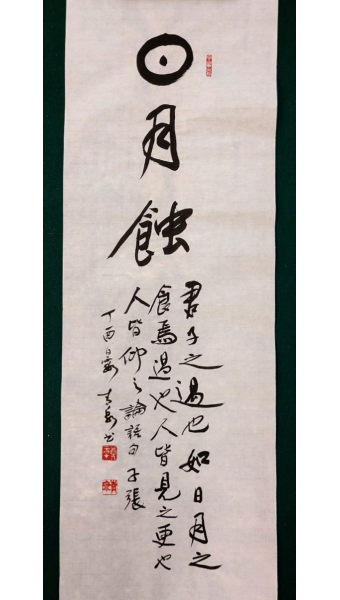 日月蝕
君子之過也如日月之
食焉過也人皆見之更也
人皆仰之論語句子張
丁酉